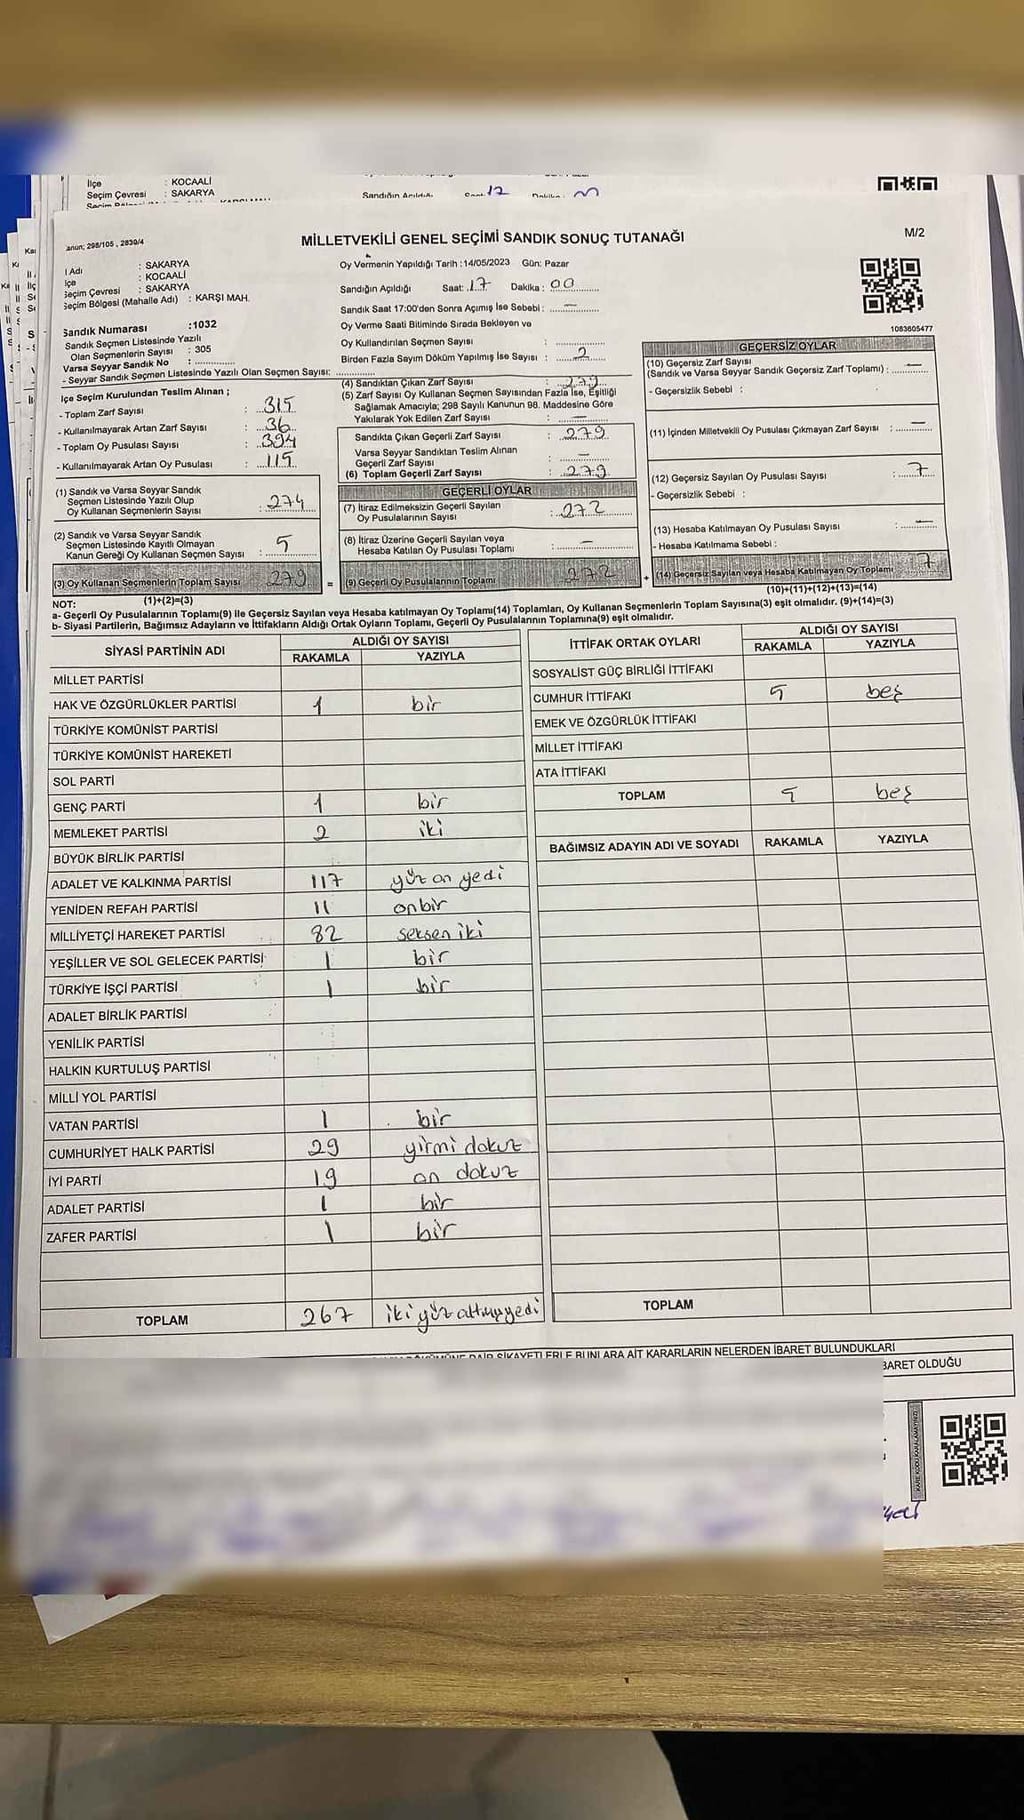 İlçe : KOCAALİ
Seçim Çevresi : SAKARYA
Sandığın Açıldığı Saat: 17 Dakika:
Kanun: 298/105 , 2839/4
MİLLETVEKİLİ GENEL SEÇİMİ SANDIK SONUÇ TUTANAĞI
M/2
İl Adı : SAKARYA
İlçe : KOCAALİ
Seçim Çevresi : SAKARYA
Seçim Bölgesi (Mahalle Adı) : KARŞI MAH.
Sandık Numarası :1032
Sandık Seçmen Listesinde Yazılı
Olan Seçmenlerin Sayısı : 305
Varsa Seyyar Sandık No :
- Seyyar Sandık Seçmen Listesinde Yazılı Olan Seçmen Sayısı:
Oy Vermenin Yapıldığı Tarih :14/05/2023 Gün: Pazar
Sandığın Açıldığı Saat: 17 Dakika : 00
Sandık Saat 17:00'den Sonra Açımış İse Sebebi : —
Oy Verme Saati Bitiminde Sırada Bekleyen ve
Oy Kullandırılan Seçmen Sayısı :
Birden Fazla Sayım Döküm Yapılmış İse Sayısı : 2
1083605477
İlçe Seçim Kurulundan Teslim Alınan ;
- Toplam Zarf Sayısı : 315
- Kullanılmayarak Artan Zarf Sayısı : 36
- Toplam Oy Pusulası Sayısı : 394
- Kullanılmayarak Artan Oy Pusulası : 115
(1) Sandık ve Varsa Seyyar Sandık
Seçmen Listesinde Yazılı Olup
Oy Kullanan Seçmenlerin Sayısı : 274
(2) Sandık ve Varsa Seyyar Sandık
Seçmen Listesinde Kayıtlı Olmayan
Kanun Gereği Oy Kullanan Seçmen Sayısı : 5
(3) Oy Kullanan Seçmenlerin Toplam Sayısı 279 =
(1)+(2)=(3)
(4) Sandıktan Çıkan Zarf Sayısı : 279
(5) Zarf Sayısı Oy Kullanan Seçmen Sayısından Fazla İse, Eşitliği
Sağlamak Amacıyla; 298 Sayılı Kanunun 98. Maddesine Göre
Yakılarak Yok Edilen Zarf Sayısı : —
Sandıkta Çıkan Geçerli Zarf Sayısı : 279
Varsa Seyyar Sandıktan Teslim Alınan
Geçerli Zarf Sayısı : —
(6) Toplam Geçerli Zarf Sayısı : 279
GEÇERLİ OYLAR
(7) İtiraz Edilmeksizin Geçerli Sayılan
Oy Pusulalarının Sayısı : 272
(8) İtiraz Üzerine Geçerli Sayılan veya
Hesaba Katılan Oy Pusulası Toplamı : —
(9) Geçerli Oy Pusulalarının Toplamı 272 +
GEÇERSİZ OYLAR
(10) Geçersiz Zarf Sayısı
(Sandık ve Varsa Seyyar Sandık Geçersiz Zarf Toplamı) : —
- Geçersizlik Sebebi :
(11) İçinden Milletvekili Oy Pusulası Çıkmayan Zarf Sayısı : —
(12) Geçersiz Sayılan Oy Pusulası Sayısı : 7
- Geçersizlik Sebebi :
(13) Hesaba Katılmayan Oy Pusulası Sayısı : —
- Hesaba Katılmama Sebebi :
(14) Geçersiz Sayılan veya Hesaba Katılmayan Oy Toplamı 7
(10)+(11)+(12)+(13)=(14)
NOT:
a- Geçerli Oy Pusulalarının Toplamı(9) ile Geçersiz Sayılan veya Hesaba katılmayan Oy Toplamı(14) Toplamları, Oy Kullanan Seçmenlerin Toplam Sayısına(3) eşit olmalıdır. (9)+(14)=(3)
b- Siyasi Partilerin, Bağımsız Adayların ve İttifakların Aldığı Ortak Oyların Toplamı, Geçerli Oy Pusulalarının Toplamına(9) eşit olmalıdır.
SİYASİ PARTİNİN ADI ALDIĞI OY SAYISI
RAKAMLA YAZIYLA
MİLLET PARTİSİ
HAK VE ÖZGÜRLÜKLER PARTİSİ 1 bir
TÜRKİYE KOMÜNİST PARTİSİ
TÜRKİYE KOMÜNİST HAREKETİ
SOL PARTİ
GENÇ PARTİ 1 bir
MEMLEKET PARTİSİ 2 iki
BÜYÜK BİRLİK PARTİSİ
ADALET VE KALKINMA PARTİSİ 117 yüz on yedi
YENİDEN REFAH PARTİSİ 11 onbir
MİLLİYETÇİ HAREKET PARTİSİ 82 seksen iki
YEŞİLLER VE SOL GELECEK PARTİSİ 1 bir
TÜRKİYE İŞÇİ PARTİSİ 1 bir
ADALET BİRLİK PARTİSİ
YENİLİK PARTİSİ
HALKIN KURTULUŞ PARTİSİ
MİLLİ YOL PARTİSİ
VATAN PARTİSİ 1 bir
CUMHURİYET HALK PARTİSİ 29 yirmi dokuz
İYİ PARTİ 19 on dokuz
ADALET PARTİSİ 1 bir
ZAFER PARTİSİ 1 bir
TOPLAM 267 iki yüz altmış yedi
İTTİFAK ORTAK OYLARI ALDIĞI OY SAYISI
RAKAMLA YAZIYLA
SOSYALİST GÜÇ BİRLİĞİ İTTİFAKI
CUMHUR İTTİFAKI 5 beş
EMEK VE ÖZGÜRLÜK İTTİFAKI
MİLLET İTTİFAKI
ATA İTTİFAKI
TOPLAM 5 beş
BAĞIMSIZ ADAYIN ADI VE SOYADI RAKAMLA YAZIYLA
TOPLAM
DAİR ŞİKAYETLERLE BUNLARA AİT KARARLARIN NELERDEN İBARET BULUNDUKLARI
BARET OLDUĞU
KARE KODU KARALAMAYINIZ!